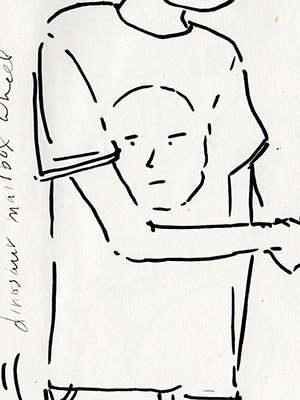 dinosaur mailbox wheel